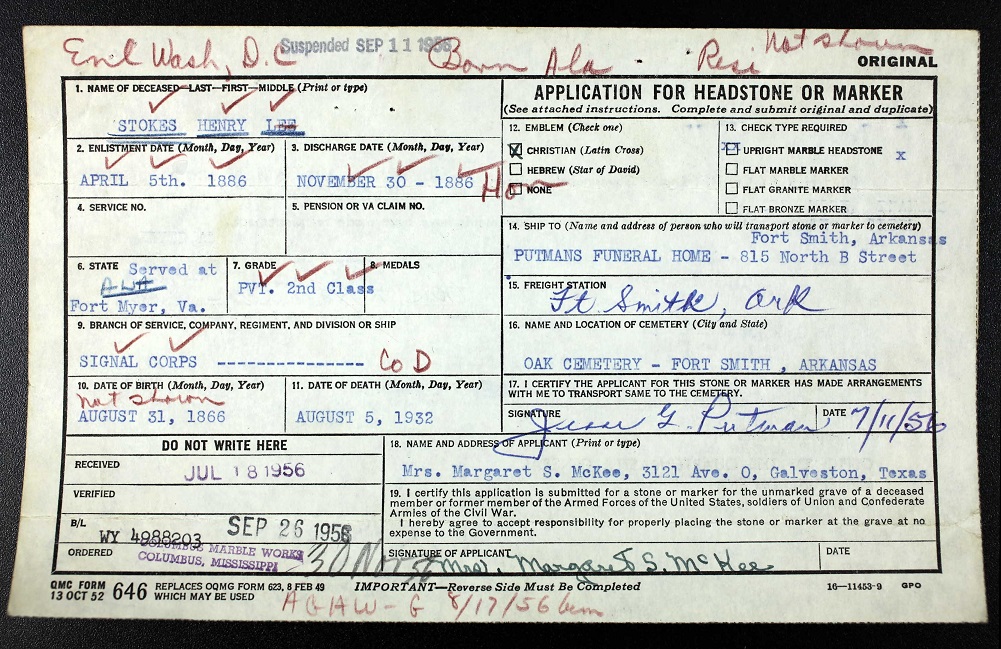 Enl Wash, D.C Suspended SEP 11 1956 Born Ala. Resi Not shown
ORIGINAL
1. NAME OF DECEASED—LAST—FIRST—MIDDLE (Print or type)
STOKES HENRY LEE
2. ENLISTMENT DATE (Month, Day, Year)
APRIL 5th. 1886
3. DISCHARGE DATE (Month, Day, Year)
NOVEMBER 30 - 1886 Hon
4. SERVICE NO.
5. PENSION OR VA CLAIM NO.
6. STATE Served at
Fort Myer, Va.
7. GRADE
PVT. 2nd Class
8. MEDALS
9. BRANCH OF SERVICE, COMPANY, REGIMENT, AND DIVISION OR SHIP
SIGNAL CORPS ---------------- Co D
10. DATE OF BIRTH (Month, Day, Year)
not shown
AUGUST 31, 1866
11. DATE OF DEATH (Month, Day, Year)
AUGUST 5, 1932
APPLICATION FOR HEADSTONE OR MARKER
(See attached instructions. Complete and submit original and duplicate)
12. EMBLEM (Check one)
X CHRISTIAN (Latin Cross)
HEBREW (Star of David)
NONE
13. CHECK TYPE REQUIRED
XX UPRIGHT MARBLE HEADSTONE x
FLAT MARBLE MARKER
FLAT GRANITE MARKER
FLAT BRONZE MARKER
14. SHIP TO (Name and address of person who will transport stone or marker to cemetery)
Fort Smith, Arkansas
PUTMANS FUNERAL HOME - 815 North B Street
15. FREIGHT STATION
Ft. Smith, Ark
16. NAME AND LOCATION OF CEMETERY (City and State)
OAK CEMETERY - FORT SMITH, ARKANSAS
17. I CERTIFY THE APPLICANT FOR THIS STONE OR MARKER HAS MADE ARRANGEMENTS
WITH ME TO TRANSPORT SAME TO THE CEMETERY.
SIGNATURE Jesse G. Putman DATE 7/11/56
DO NOT WRITE HERE
RECEIVED JUL 18 1956
VERIFIED
B/L WY 4988203 SEP 26 1956
ORDERED COLUMBUS MARBLE WORKS
COLUMBUS, MISSISSIPPI
18. NAME AND ADDRESS OF APPLICANT (Print or type)
Mrs. Margaret S. McKee, 3121 Ave. O, Galveston, Texas
19. I certify this application is submitted for a stone or marker for the unmarked grave of a deceased
member or former member of the Armed Forces of the United States, soldiers of Union and Confederate
Armies of the Civil War.
I hereby agree to accept responsibility for properly placing the stone or marker at the grave at no
expense to the Government.
SIGNATURE OF APPLICANT Mrs. Margaret S. McKee DATE
QMC FORM
13 OCT 52 646 REPLACES OQMG FORM 623, 8 FEB 49
WHICH MAY BE USED
IMPORTANT—Reverse Side Must Be Completed
16—11453-9 GPO
AGAW-G 8/17/56